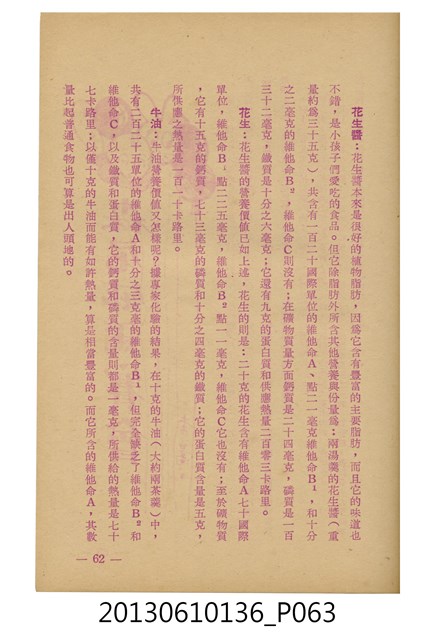 花生醬：花生醬本來是很好的植物脂肪，因為它含有豐富的主要脂肪，而且它的味道也
不錯，是小孩子們愛吃的食品。但它除脂肪外所含其他營養與份量為：兩湯羹的花生醬（重
量約為三十五克），共含有一百二十國際單位的維他命A、點二一毫克維他命B1，和十分
之二毫克的維他命B2，維他命C則沒有；在礦物質量方面鈣質是二十四毫克，磷質是一百
三十二毫克，鐵質是十分之六毫克；它還有九克的蛋白質和供應熱量二百零三卡路里。
花生：花生醬的營養價值已如上述，花生的則是：二十克的花生含有維他命A七十國際
單位，維他命B1點二二五毫克，維他命B2點一一毫克，維他命C它也沒有；至於礦物質
，它有十五克的鈣質，七十三毫克的磷質和十分之四毫克的鐵質；它的蛋白質含量是五克，
所供應之熱量是一百一十卡路里。
牛油：牛油營養價值又怎樣呢？據專家化驗的結果，在十克的牛油（大約兩茶羹）中，
共有二百二十五單位的維他命A和十分之三克毫的維他命B1，但完全缺乏了維他命B2和
維他命C，以及鐵質和蛋白質，它的鈣質和磷質的含量則都是一毫克，所供給的熱量是七十
七卡路里；以僅十克的牛油而能有如許熱量，算是相當豐富的。而它所含的維他命A，其數
量比起普通食物也可算是出人頭地的。
— 62 —
20130610136_P063